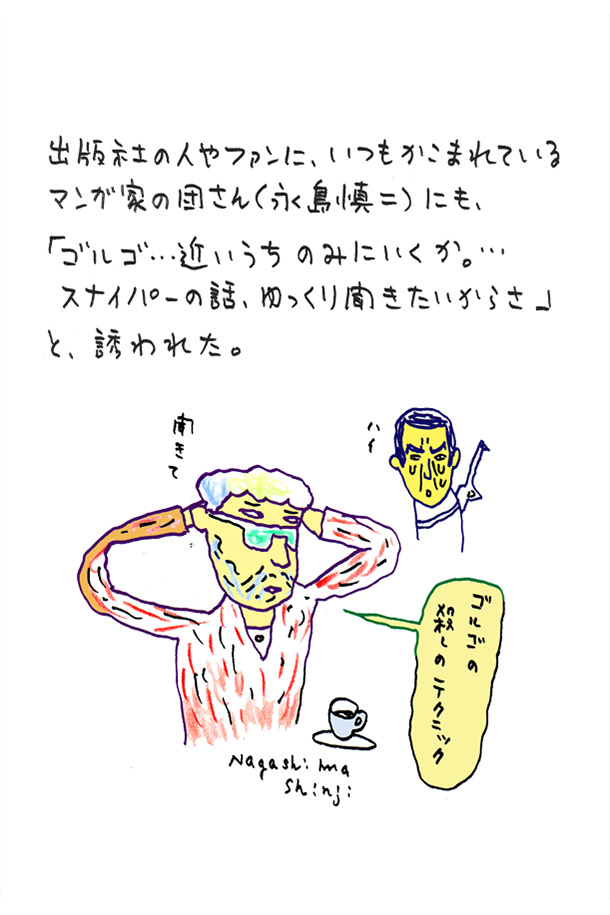 出版社の人やファンに、いつもかこまれている
マンガ家の団さん(永島慎二)にも、
「ゴルゴ…近いうち のみにいくか。…
スナイパーの話、ゆっくり聞きたいからさ」
と、誘われた。
聞きて
ハイ
ゴルゴの
殺しのテクニック
Nagashima
Shinji